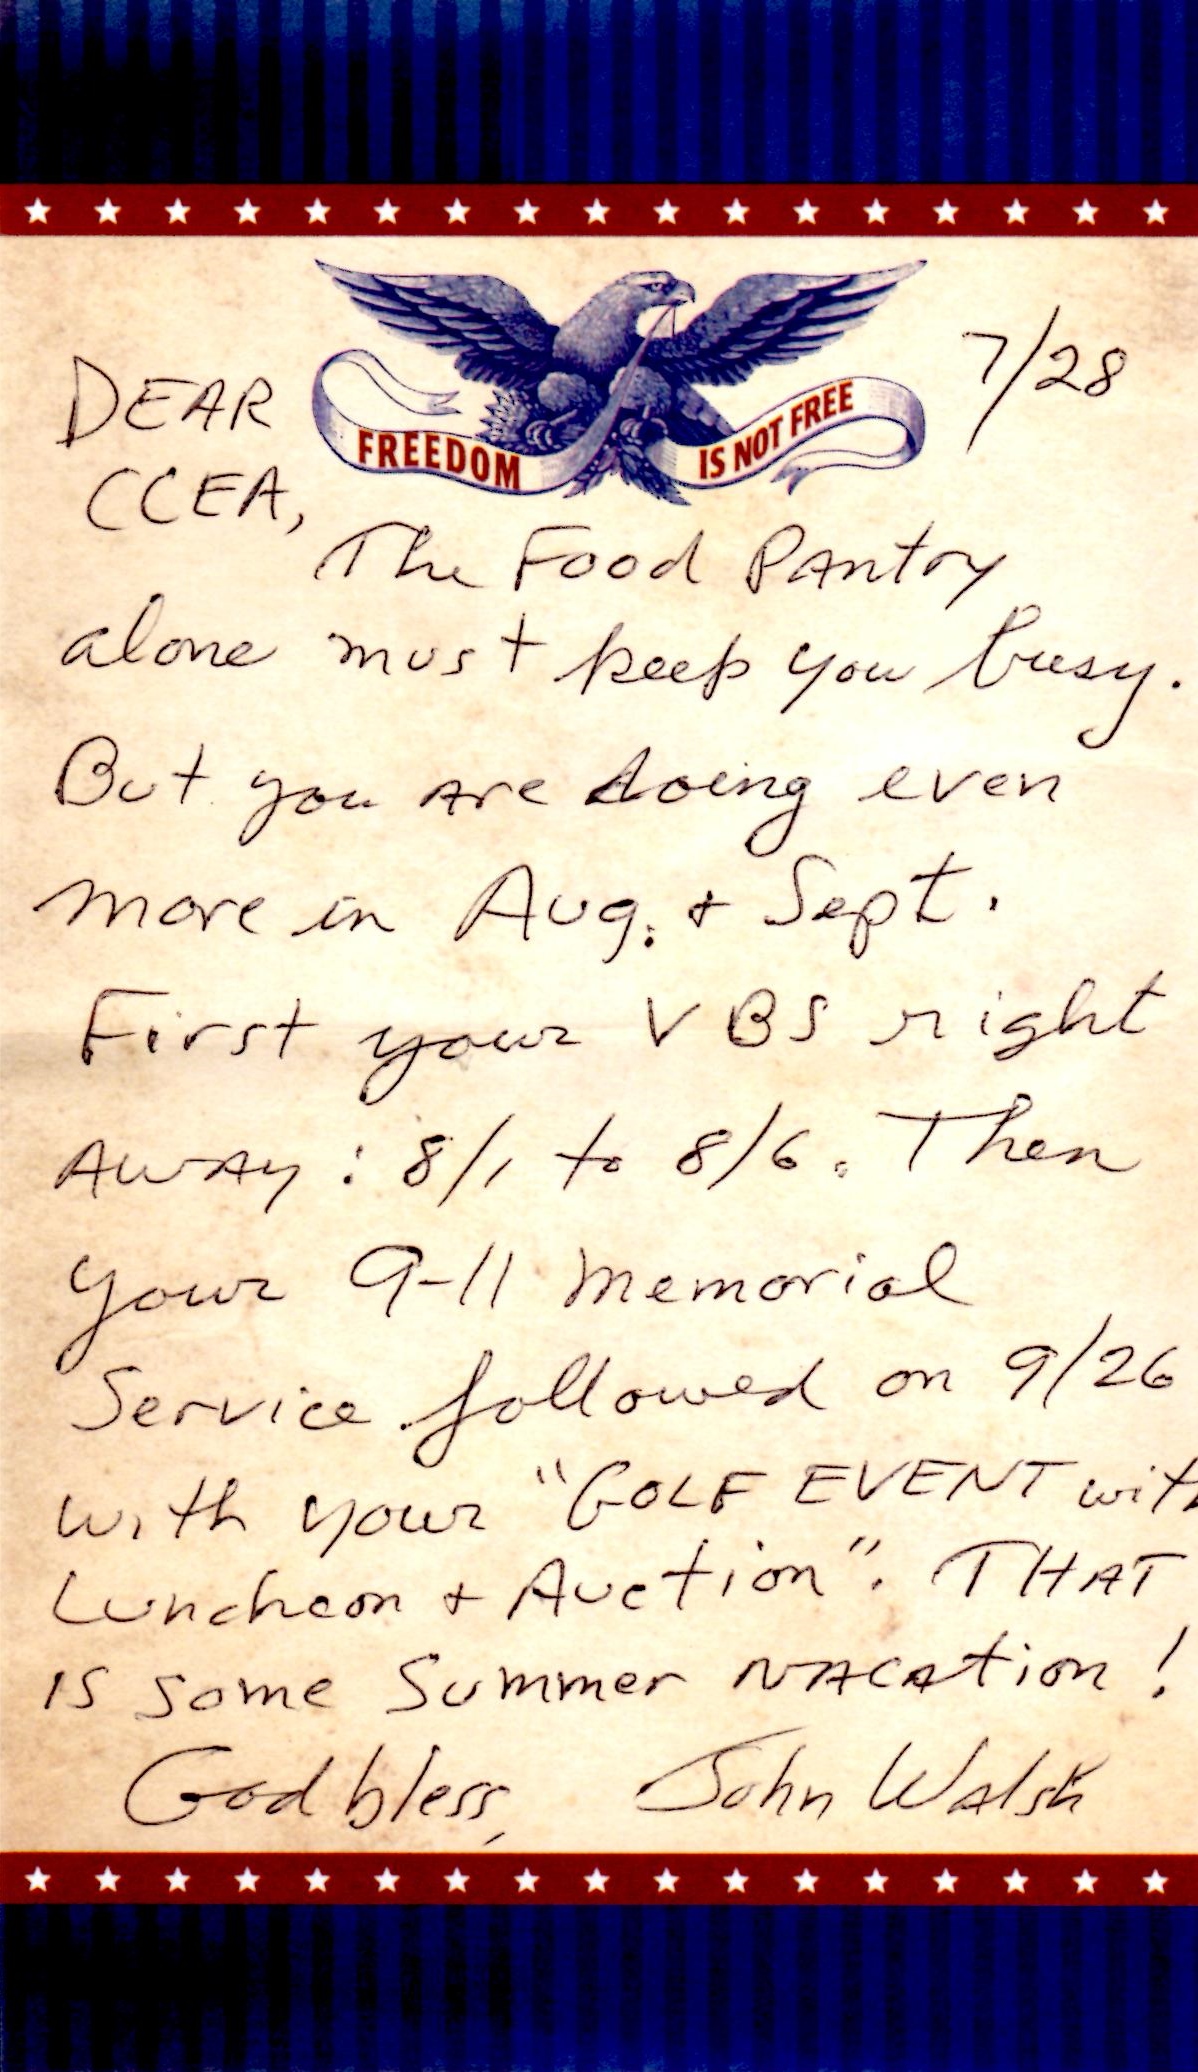 7/28
DEAR
FREEDOM IS NOT FREE
CCEA,
The Food Pantry
alone must keep you busy.
But you are doing even
more in Aug. + Sept.
First your VBS right
AWAY: 8/1 to 8/6. Then
your 9-11 Memorial
Service followed on 9/26
with your "GOLF EVENT with
Luncheon + Auction". THAT
is some Summer VACATION!
God bless, John Walsh